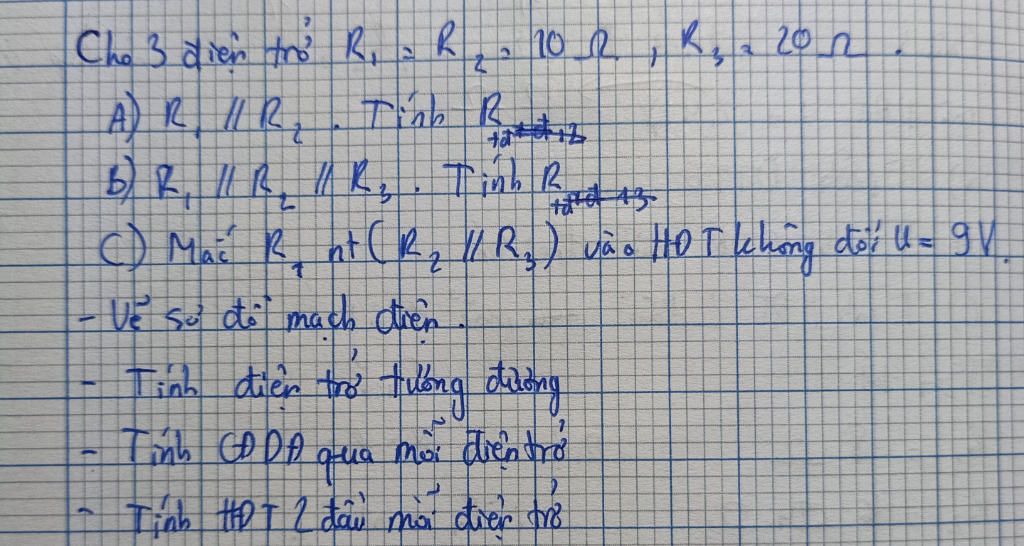 Cho 3 điện trở R₁ = R₂ = 10 Ω, R₃ = 20 Ω.
A) R₁ // R₂. Tính R tđ
B) R₁ // R₂ // R₃. Tính R tđ
C) Mắc R₁ nt (R₂ // R₃) vào HĐT không đổi U = 9V.
- Vẽ sơ đồ mạch điện.
- Tính điện trở tương đương
- Tính CĐDĐ qua mỗi điện trở
- Tính HĐT 2 đầu mỗi điện trở